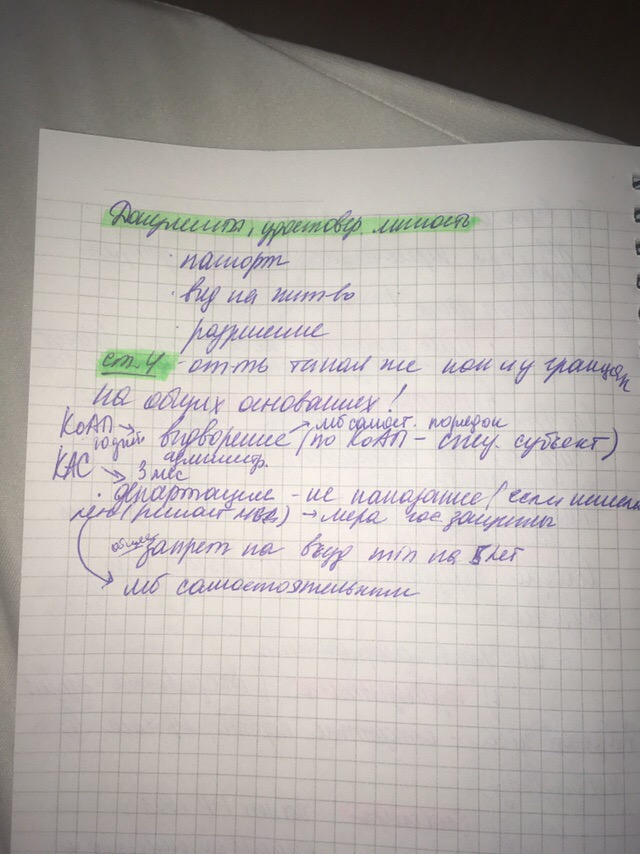 Документы, удостовер. личность
· паспорт
· вид на жит-во
· разрешение
ст. 4 - отв-ть такая же как и у граждан
на общих основаниях!
КоАП → → мб самост. порядок
выдворение (по КоАП - спец. субъект)
КАС ↘ 3 мес админстр.
· депортация - не наказание (если
(решает МВД) → мера гос защиты
запрет на въезд min на 5 лет
→ мб самостоятельным